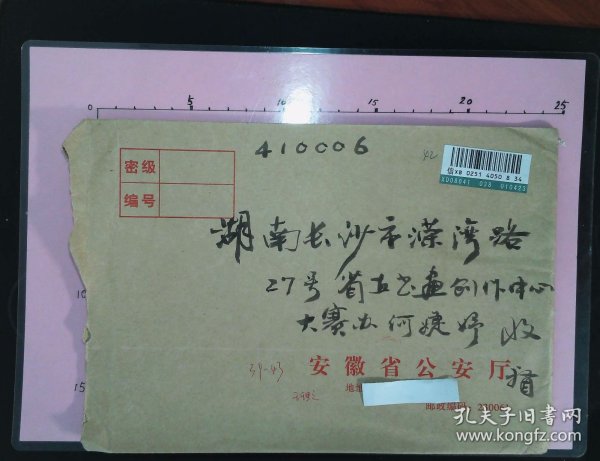 0 5 10 15 20 25
410006
42
密级
编号
信XB 0251 4050 8 34
湖南长沙市溁湾路
27号省直书画创作中心
大赛办何婕妤收
10
39-43
安徽省公安厅
15
邮政编码 230061
孔夫子旧书网
www.kongfz.com